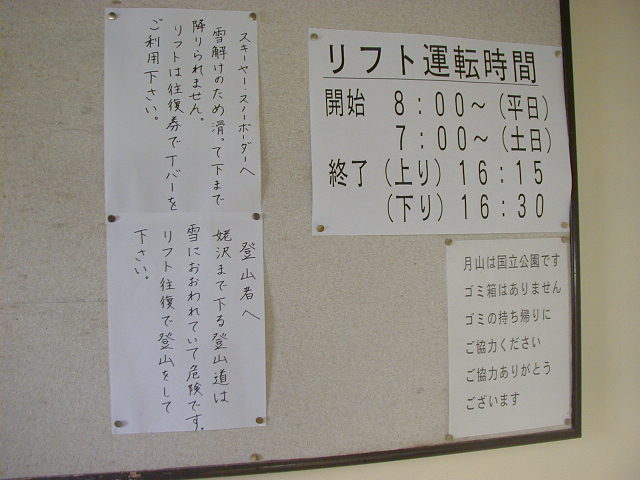 スキーヤー・スノーボーダーへ
雪解けのため滑って下まで
降りられません。
リフトは往復券でTバーを
ご利用下さい。
登山者へ
姥沢まで下る登山道は
雪におおわれていて危険です。
リフト往復で登山をして
下さい。
リフト運転時間
開始 8:00～(平日)
7:00～(土日)
終了(上り)16:15
(下り)16:30
月山は国立公園です
ゴミ箱はありません
ゴミの持ち帰りに
ご協力ください
ご協力ありがとう
ございます